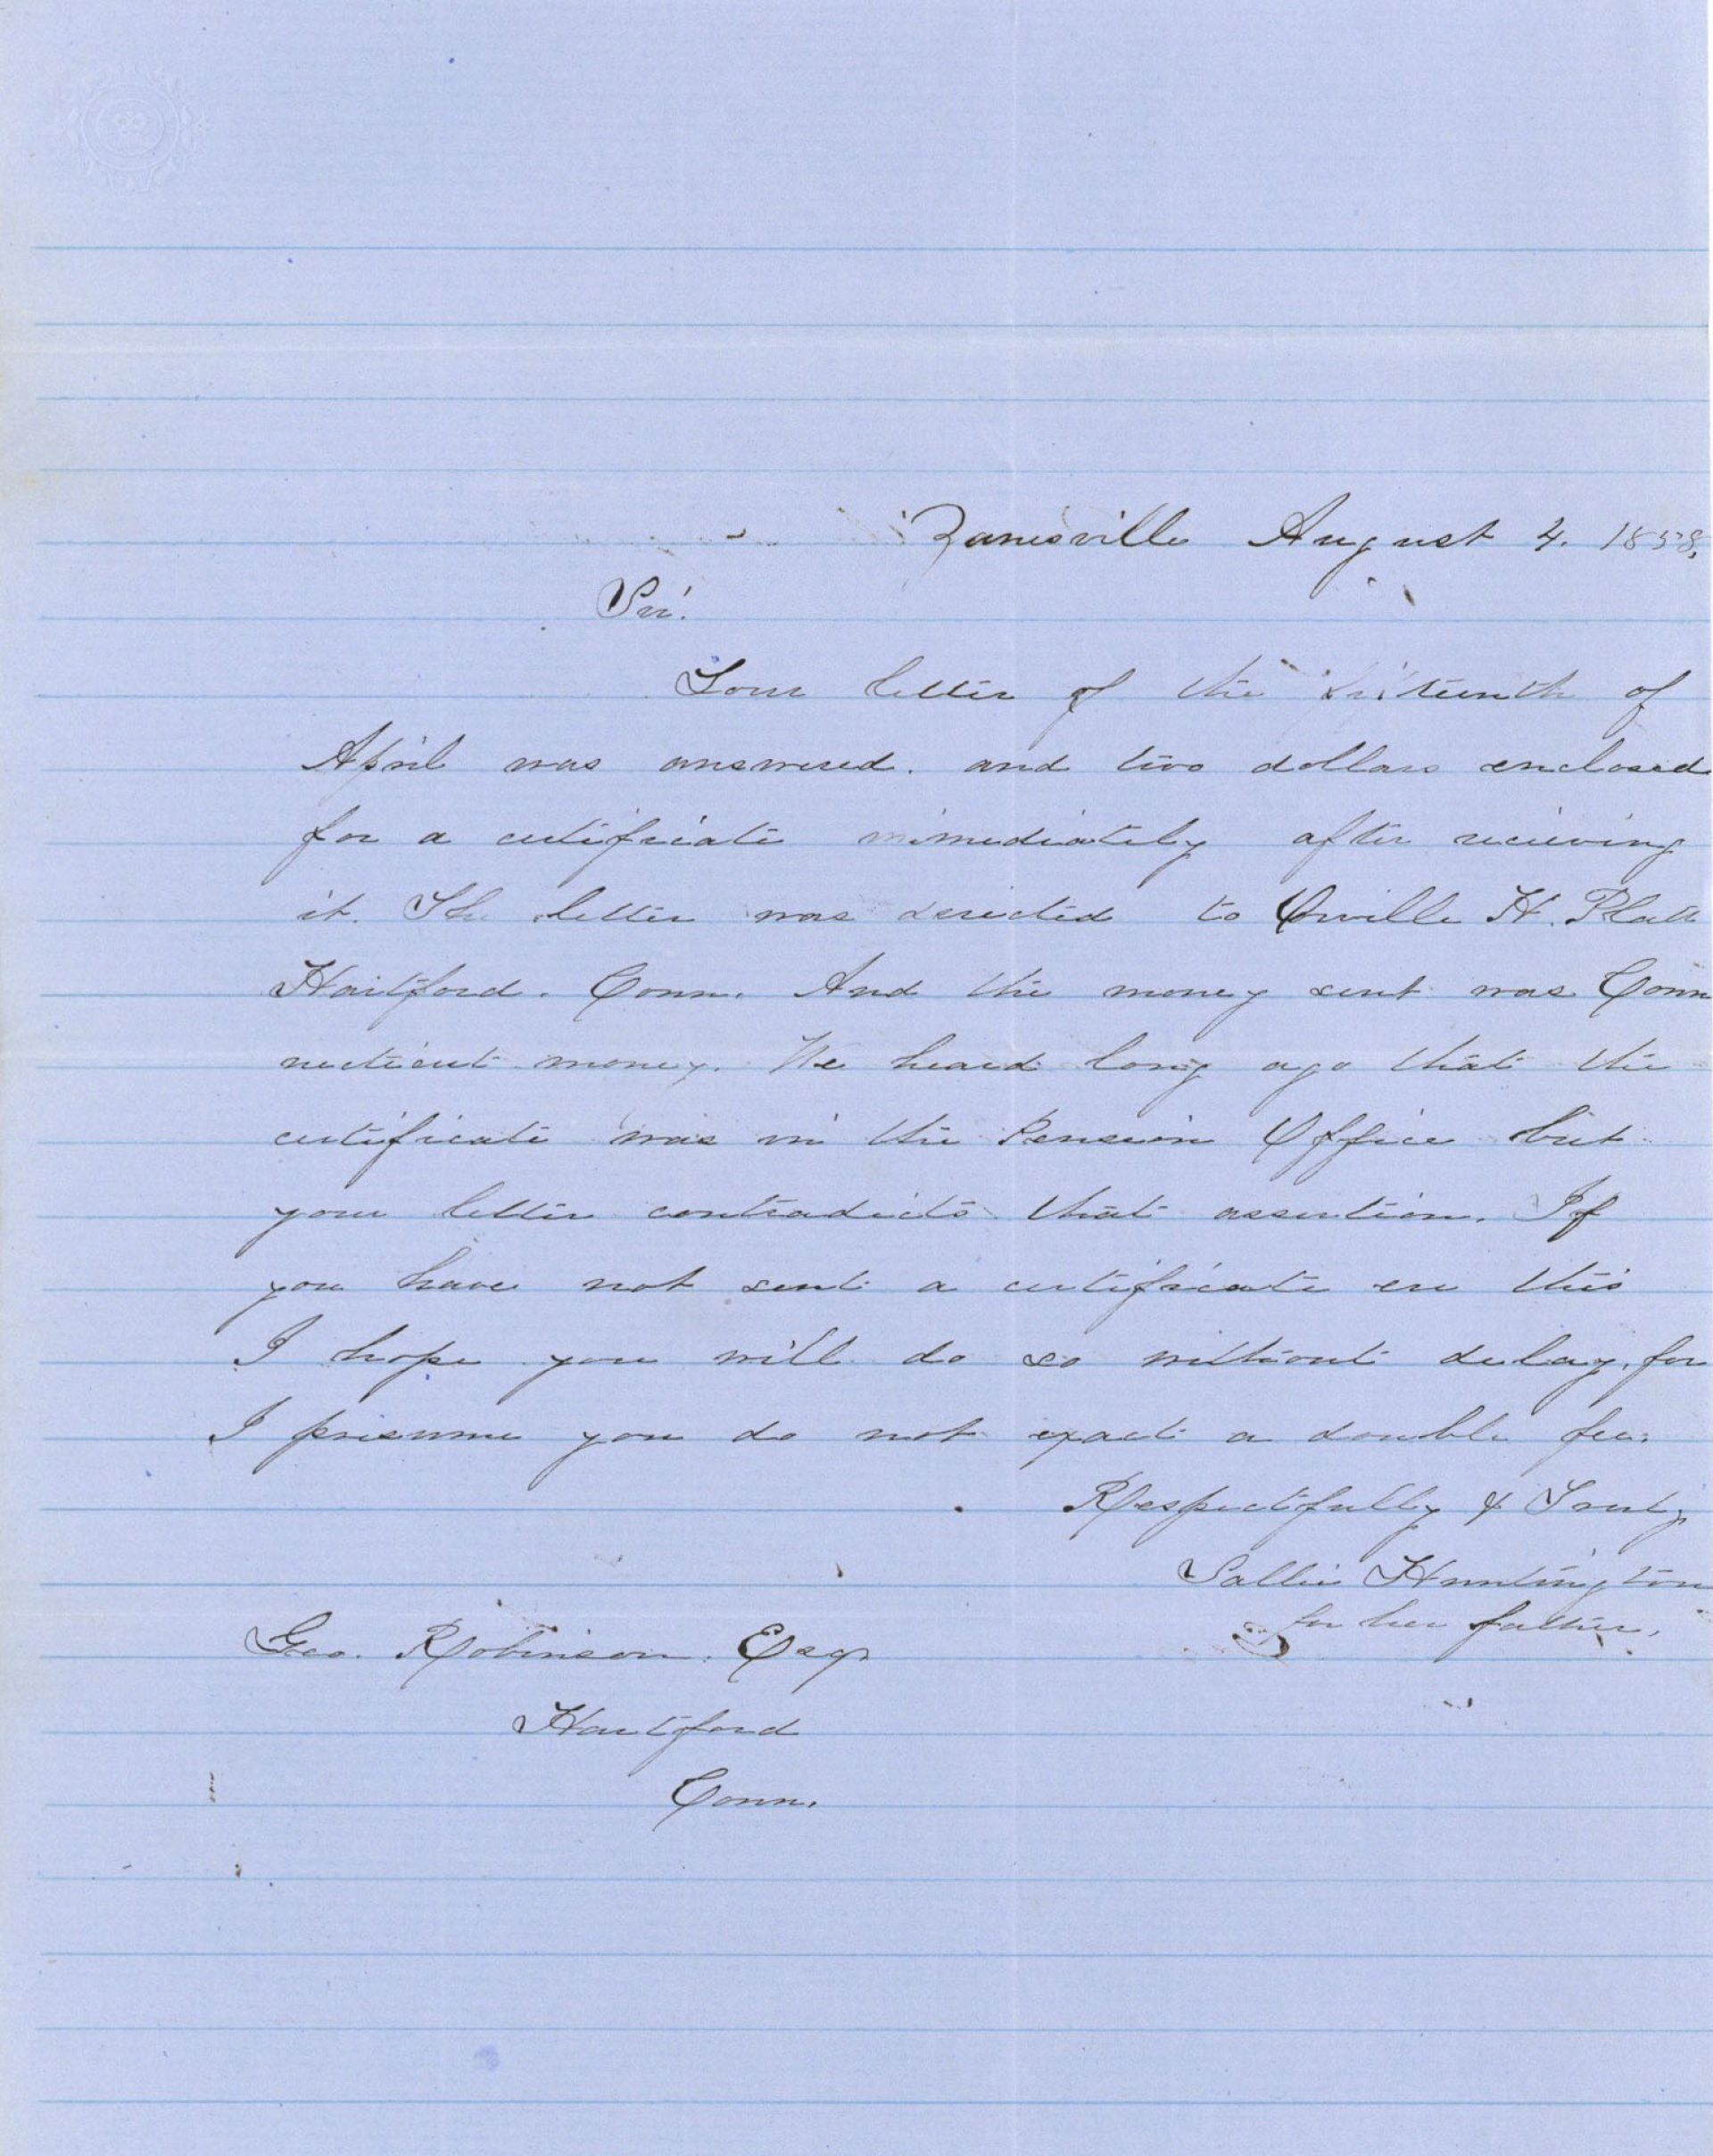 Zanesville August 4. 1858.
Sir.
Your letter of the sixteenth of
April was answered. and two dollars enclosed
for a certificate immediately after recieving
it. The letter was directed to Orville H. Platt
Hartford. Conn. And the money sent was Conn
necticut money. We heard long ago that the
certificate was in the Pension Office but
your letter contradicts that assertion. If
you have not sent a certificate ere this
I hope you will do so without delay, for
I presume you do not exact a double fee.
Respectfully & Truly
Sallie Huntington
for her father.
Geo. Robinson. Esqr
Hartford
Conn.